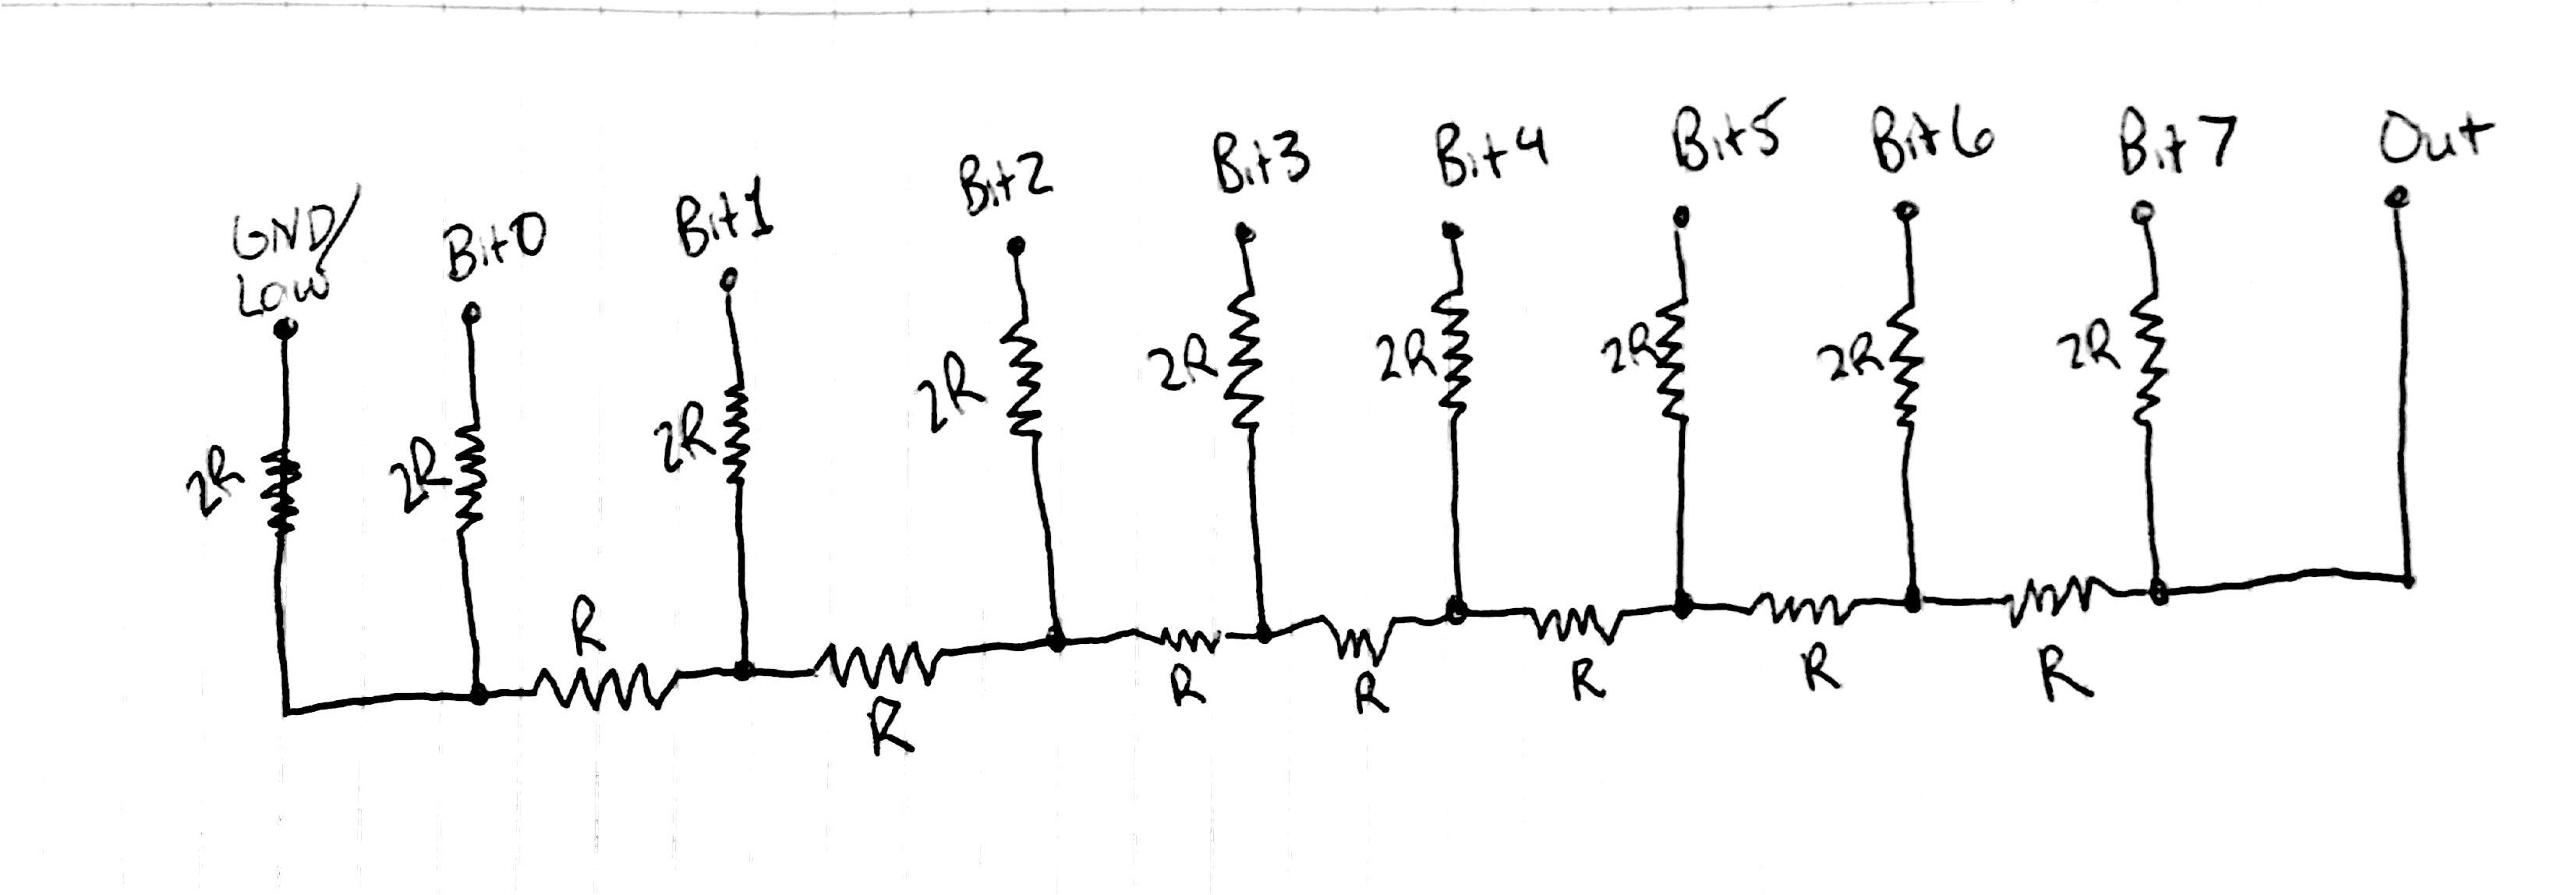 GND/
Low
Bit0
Bit1
Bit2
Bit3
Bit4
Bit5
Bit6
Bit7
Out
2R
2R
2R
2R
2R
2R
2R
2R
2R
R
R
R
R
R
R
R